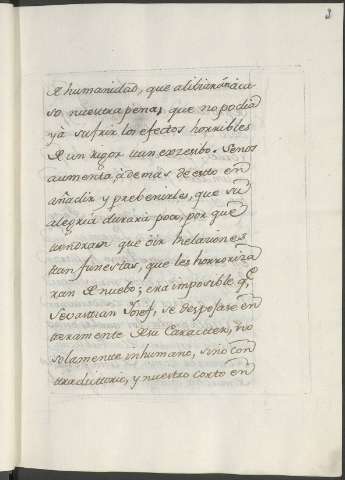 3
de humanidad, que alibiarón ácà
so nuestra pena, que no podia
yà sufrir los efectos horribles
de un rigor tan exzesibo. Senos
aumenta, á demas de esto en
añadir y prebenirles, que su
alegria durará poco, por que
tendran que óir relaciones
tan funestas, que les horroriza
ran de nuebo; era imposible q.e
Sebastian Josef, se despojase en
teramente de su Caracter, no
solamente inhumano, sino con
traditorio, y nuestro corto en